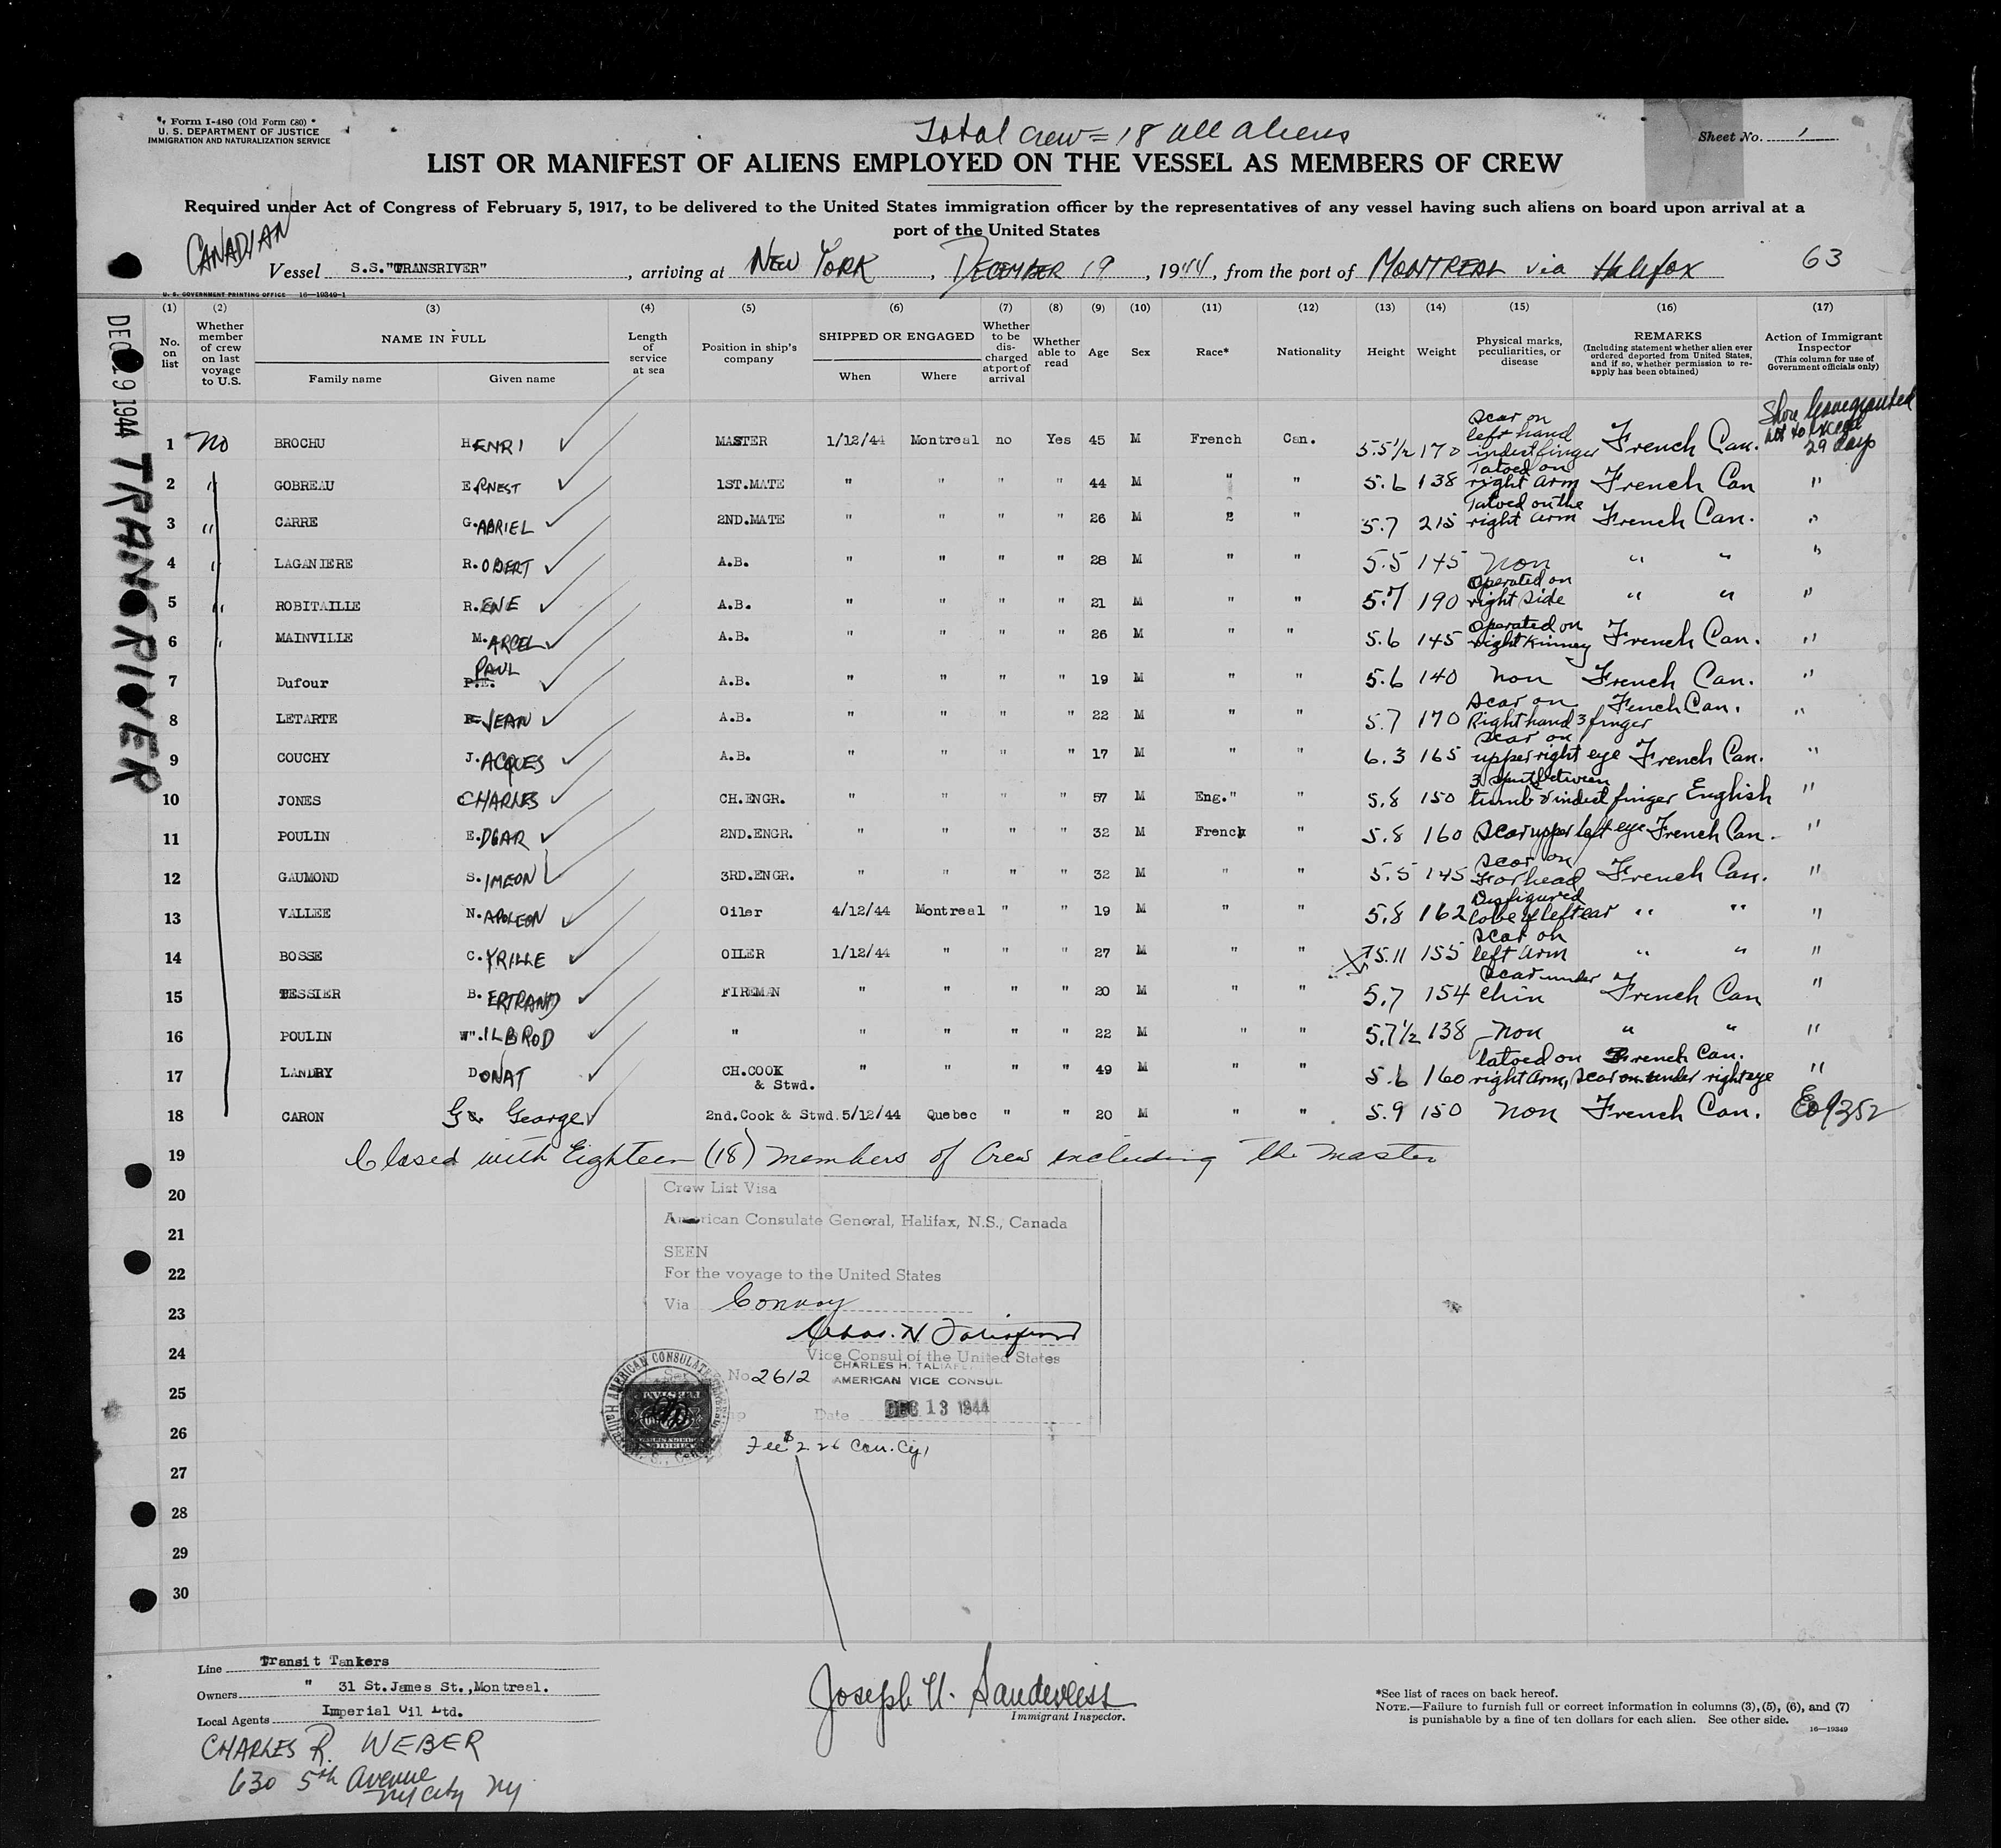 Form I-480 (Old Form 680)
U. S. DEPARTMENT OF JUSTICE
IMMIGRATION AND NATURALIZATION SERVICE
Total crew = 18 all aliens
Sheet No. 1
LIST OR MANIFEST OF ALIENS EMPLOYED ON THE VESSEL AS MEMBERS OF CREW
Required under Act of Congress of February 5, 1917, to be delivered to the United States immigration officer by the representatives of any vessel having such aliens on board upon arrival at a
port of the United States
CANADIAN
Vessel S.S."TRANSRIVER", arriving at NEW YORK, DECEMBER 19, 1944, from the port of MONTREAL via Halifax
63
U. S. GOVERNMENT PRINTING OFFICE 16—19349-1
DEC 19 1944 TRANSRIVER
(1) (2) (3) (4) (5) (6) (7) (8) (9) (10) (11) (12) (13) (14) (15) (16) (17)
No. on list
Whether member of crew on last voyage to U.S.
NAME IN FULL
Family name
Given name
Length of service at sea
Position in ship's company
SHIPPED OR ENGAGED
When
Where
Whether to be discharged at port of arrival
Whether able to read
Age
Sex
Race*
Nationality
Height
Weight
Physical marks, peculiarities, or disease
REMARKS
(Including statement whether alien ever ordered deported from United States, and if so, whether permission to reapply has been obtained)
Action of Immigrant Inspector
(This column for use of Government officials only)
1 No BROCHU HENRI MASTER 1/12/44 Montreal no Yes 45 M French Can. 5.5½ 170 Scar on left hand indest finger French Can. Shore leave granted not to exceed 29 days
2 " GOBREAU ERNEST 1ST.MATE " " " " 44 M " " 5.6 138 Tatoed on right arm French Can "
3 " CARRE GABRIEL 2ND.MATE " " " " 26 M " " 5.7 215 Tatoed on the right arm French Can. "
4 " LAGANIERE R.OBERT A.B. " " " " 28 M " " 5.5 145 Non " " "
5 " ROBITAILLE R.ENE A.B. " " " " 21 M " " 5.7 190 Operated on right side " " "
6 " MAINVILLE M.ARCEL A.B. " " " " 26 M " " 5.6 145 Operated on right kinney French Can. "
7 Dufour P.E. PAUL A.B. " " " " 19 M " " 5.6 140 non French Can. "
8 LETARTE JEAN A.B. " " " " 22 M " " 5.7 170 Scar on Right hand 3 finger Fench Can. "
9 COUCHY J.ACQUES A.B. " " " " 17 M " " 6.3 165 Scar on upper right eye French Can. "
10 JONES CHARLES CH.ENGR. " " " " 57 M Eng." " 5.8 150 3 between tumb & indest finger English "
11 POULIN E.DGAR 2ND.ENGR. " " " " 32 M French " 5.8 160 Scar upper left eye French Can. "
12 GAUMOND S.IMEON 3RD.ENGR. " " " " 32 M " " 5.5 145 Scar on Forhead French Can. "
13 VALLEE N.APOLEON Oiler 4/12/44 Montreal " " 19 M " " 5.8 162 Disfigured lobe of left ear " " "
14 BOSSE C.YRILLE OILER 1/12/44 " " " 27 M " " 5.11 155 Scar on left arm " " "
15 TESSIER B.ERTRAND FIREMAN " " " " 20 M " " 5.7 154 Scar under chin French Can "
16 POULIN W.ILBROD " " " " " 22 M " " 5.7½ 138 non " " "
17 LANDRY DONAT CH.COOK & Stwd. " " " " 49 M " " 5.6 160 tatoed on right arm, Scar on under right eye French Can. "
18 CARON George 2nd.Cook & Stwd. 5/12/44 Quebec " " 20 M " " 5.9 150 non French Can. Eo 9352
19 Closed with Eighteen (18) members of Crew including the master
20
21
22
23
24
25
26
27
28
29
30
Crew List Visa
American Consulate General, Halifax, N.S., Canada
SEEN
For the voyage to the United States
Via Convoy
Vice Consul of the United States
CHARLES H. TALIAFE
No 2612 AMERICAN VICE CONSUL
Date DEC 13 1944
Fee $2.26 Can. Cy.
AMERICAN CONSULATE
Line Transit Tankers
Owners " 31 St.James St.,Montreal.
Local Agents Imperial Oil Ltd.
CHARLES R. WEBER
630 5th Avenue
NY City NY
Joseph U. Sandeveiss
Immigrant Inspector.
*See list of races on back hereof.
NOTE.—Failure to furnish full or correct information in columns (3), (5), (6), and (7)
is punishable by a fine of ten dollars for each alien. See other side.
16—19349